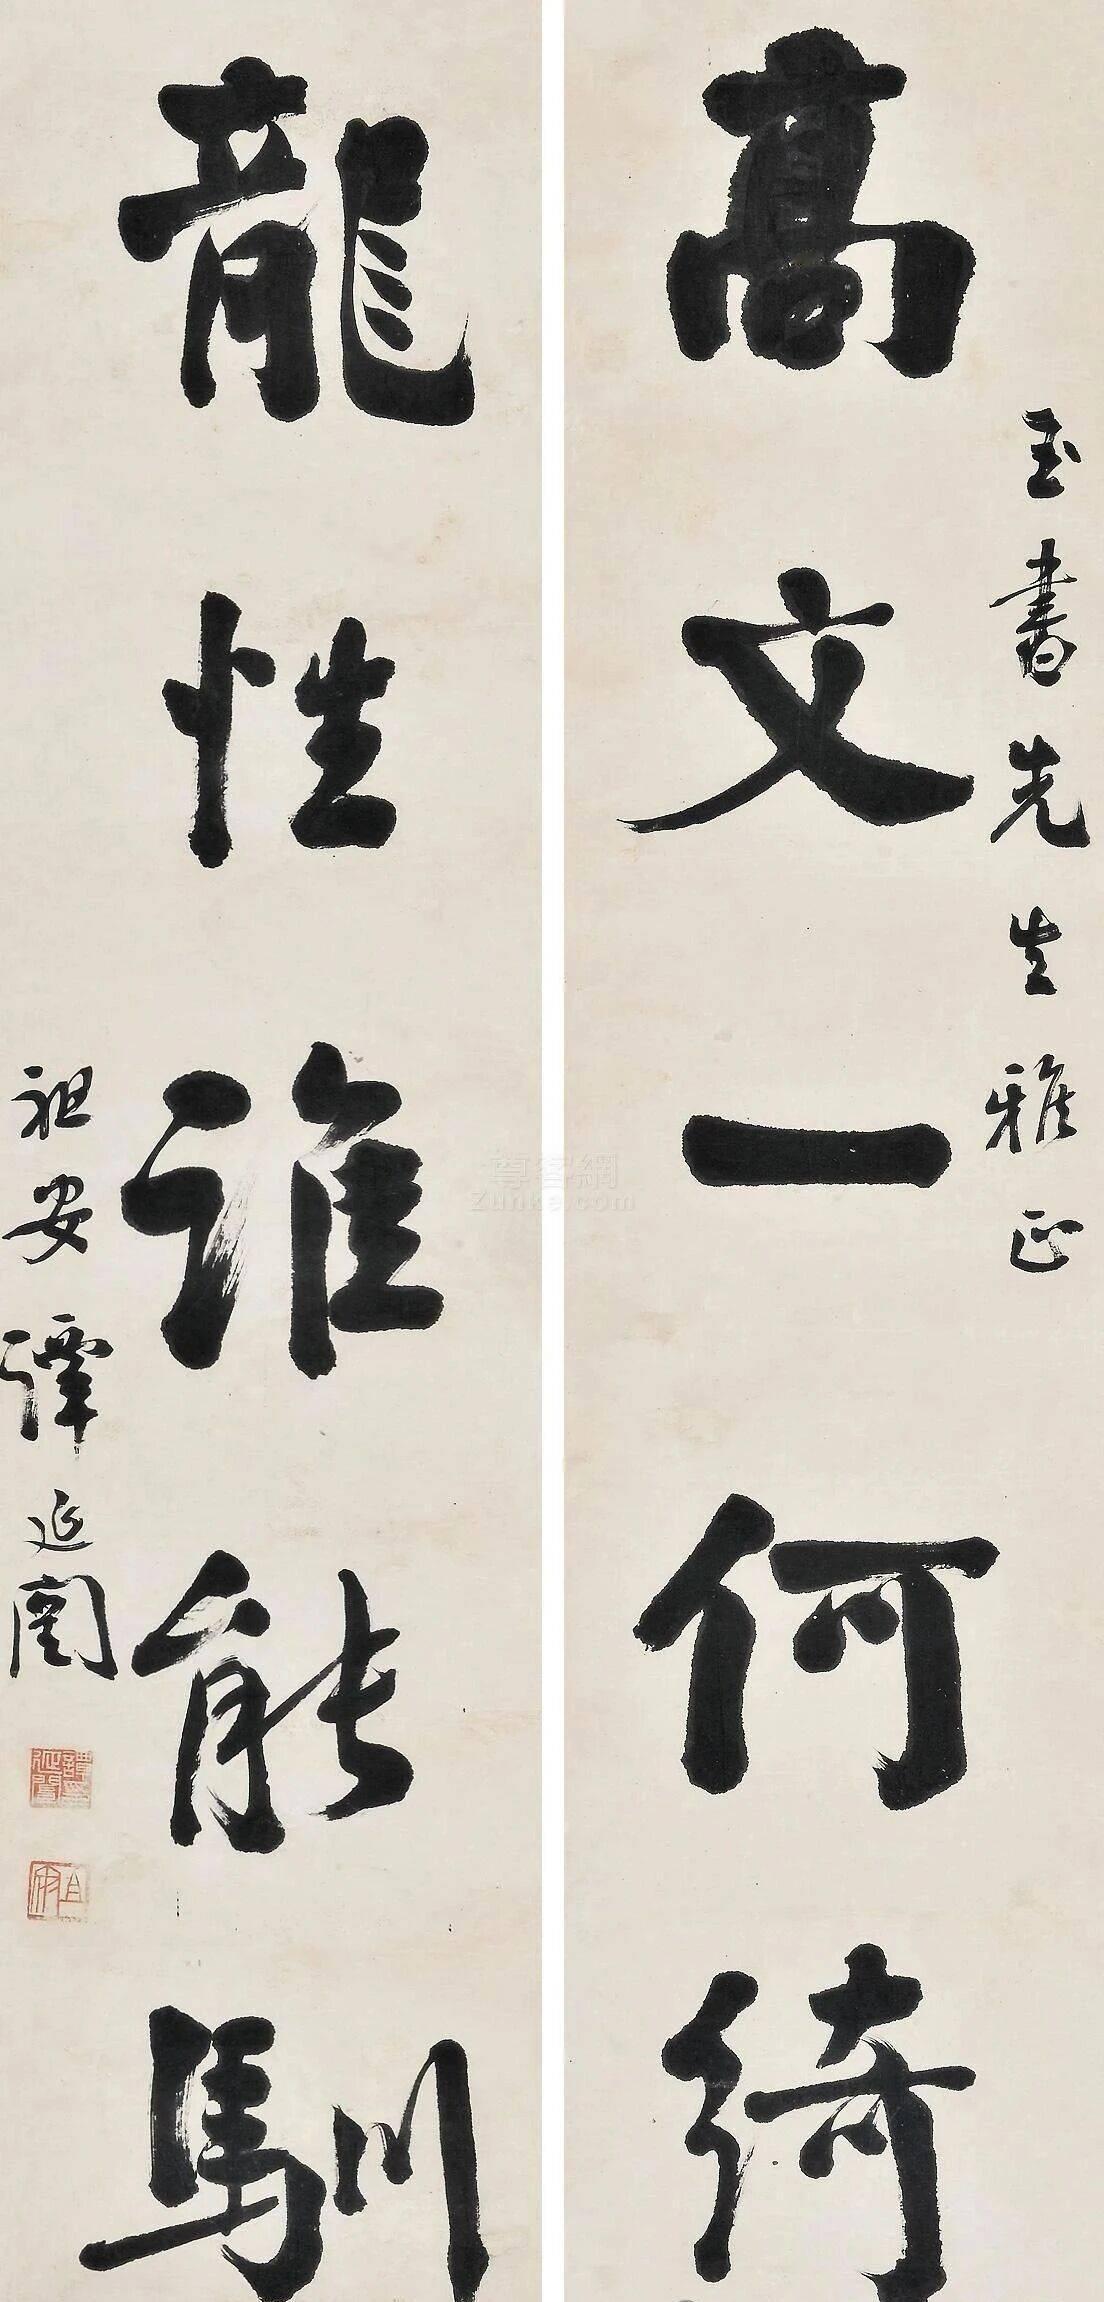 高文一何綺
玉書先生雅正
龍性誰能馴
祖安譚延闓
譚延闓印
尊客網
Zunke.com